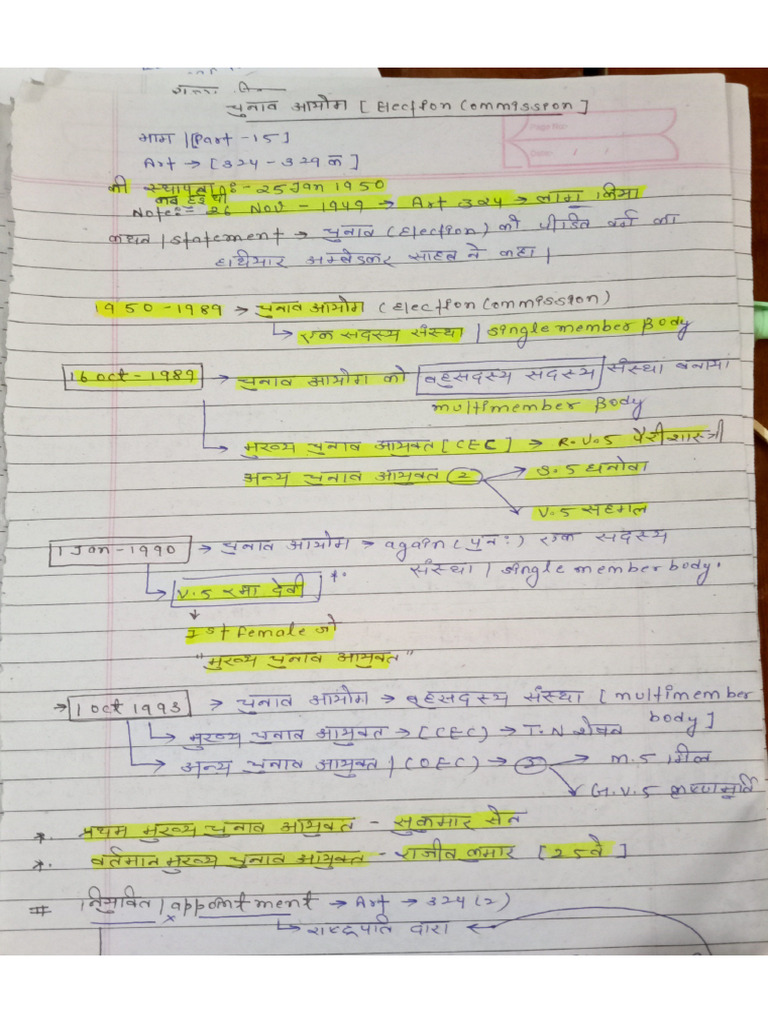 चुनाव आयोग [Election Commission]
Page No:
Date: / /
भाग |[Part -15]
Art → [324 - 329 क]
की स्थापना :- 25 Jan 1950
कब हुई थी
Note:- 26 Nov - 1949 → Art 324 → लागू किया
कथन | statement → चुनाव (Election) को पीडित वर्ग का
हथियार अम्बेडकर साहब ने कहा |
1950-1989 → चुनाव आयोग (Election Commission)
↳ एक सदस्य संस्था | single member Body
16 oct - 1989 → चुनाव आयोग को बहुसदस्य सदस्य संस्था बनाया
multimember Body
मुख्य चुनाव आयुक्त [CEC] → R.V.S पैरीशास्त्री
अन्य चुनाव आयुक्त 2 → S.S धनोवा
V.S सहगल
1 Jan - 1990 → चुनाव आयोग → again (पुनः) एक सदस्य
संस्था | single member body.
↳ V.S रमा देवी *
↓
Ist female जो
"मुख्य चुनाव आयुक्त"
→ 1 oct 1993 → चुनाव आयोग → बहुसदस्य संस्था [multimember
body]
↳ मुख्य चुनाव आयुक्त → [CEC) → T.N शेषन
↳ अन्य चुनाव आयुक्त | (OEC) → 2 → M.S गिल
G.V.S कृष्णमूर्ति
* प्रथम मुख्य चुनाव आयुक्त - सुकुमार सेन
* वर्तमान मुख्य चुनाव आयुक्त - राजीव कुमार [25वे]
# नियुक्ति | appointment → Art → 324 (2)
↳ राष्ट्रपति द्वारा ←